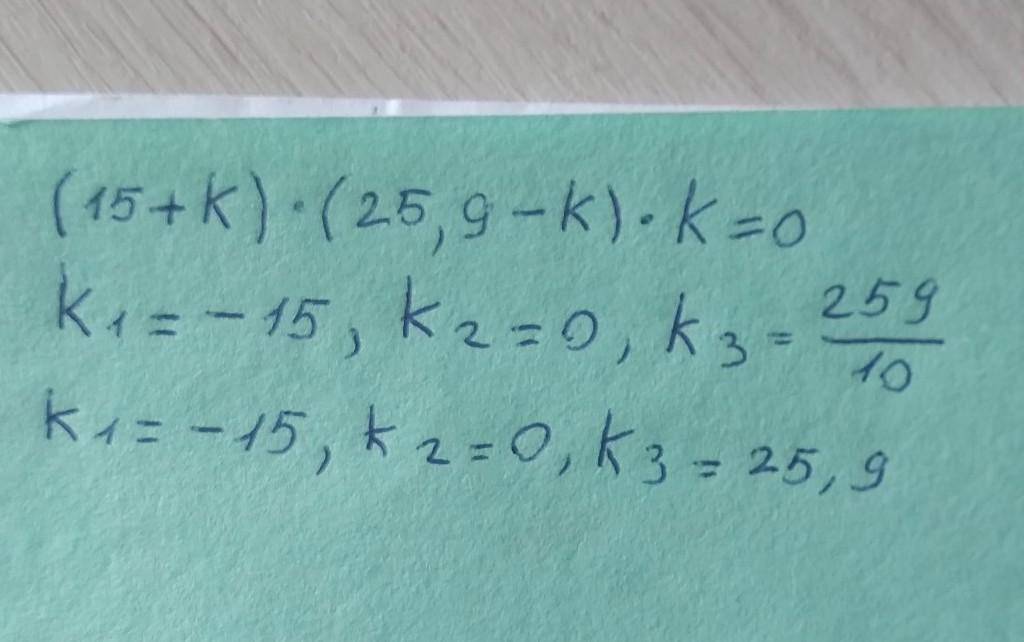 (15+k)·(25,9-k)·k=0
k₁=-15, k₂=0, k₃=259/10
k₁=-15, k₂=0, k₃=25,9